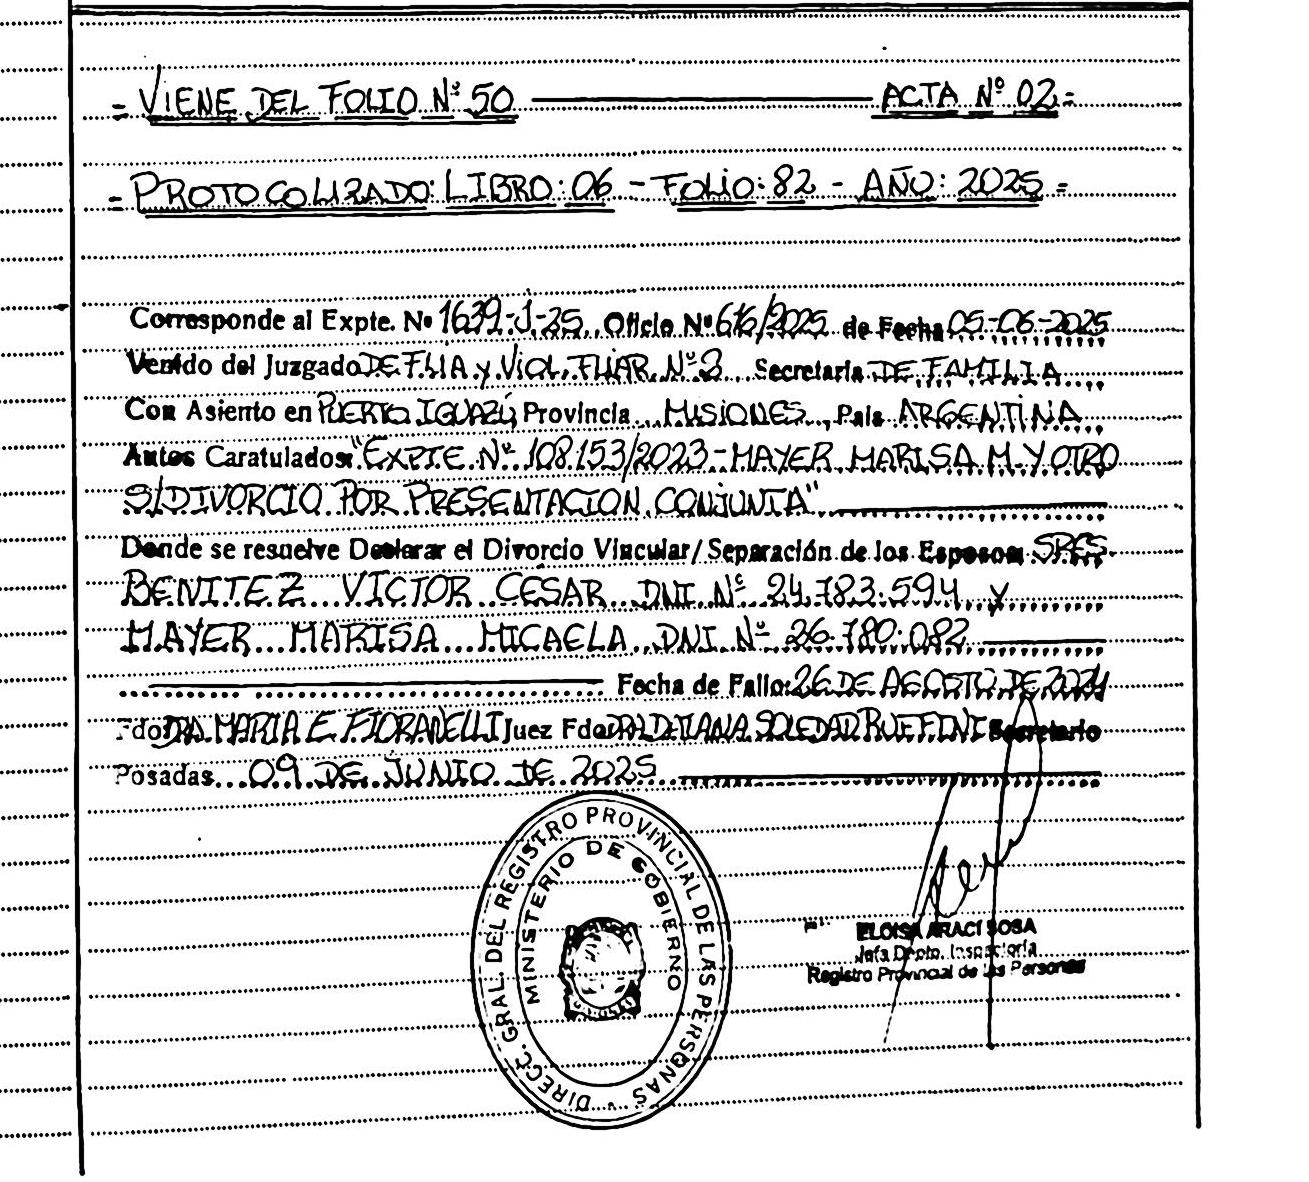 = VIENE DEL FOLIO Nº 50 ACTA Nº 02 =
= PROTOCOLIZADO: LIBRO: 06 - FOLIO: 82 - AÑO: 2025 =
Corresponde al Expte. Nº 1639-J-25 Oficio Nº 616/2025 de Fecha 05-06-2025
Venido del Juzgado DE FLIA y VIOL. FLIAR. Nº 3 Secretaria DE FAMILIA
Con Asiento en PUERTO IGUAZÚ Provincia MISIONES Pais ARGENTINA
Autos Caratulados: "EXPTE. Nº 108.153/2023 - MAYER MARISA M. Y OTRO
S/DIVORCIO POR PRESENTACION CONJUNTA"
Donde se resuelve Declarar el Divorcio Vincular/Separación de los Esposos: SRES.
BENITEZ VICTOR CESAR DNI Nº 24.783.594 y
MAYER MARISA MICAELA DNI Nº 26.780.082
Fecha de Fallo: 26 DE AGOSTO DE 2024
Fdo: DRA. MARIA E. FIORANELLI Juez Fdo: DRA. DAIANA SOLEDAD RUFFINI Secretario
Posadas 09 DE JUNIO DE 2025
DIRECC. GRAL. DEL REGISTRO PROVINCIAL DE LAS PERSONAS
MINISTERIO DE GOBIERNO
ELOISA ARACI SOSA
Jefa Dpto. Inspectoría
Registro Provincial de las Personas